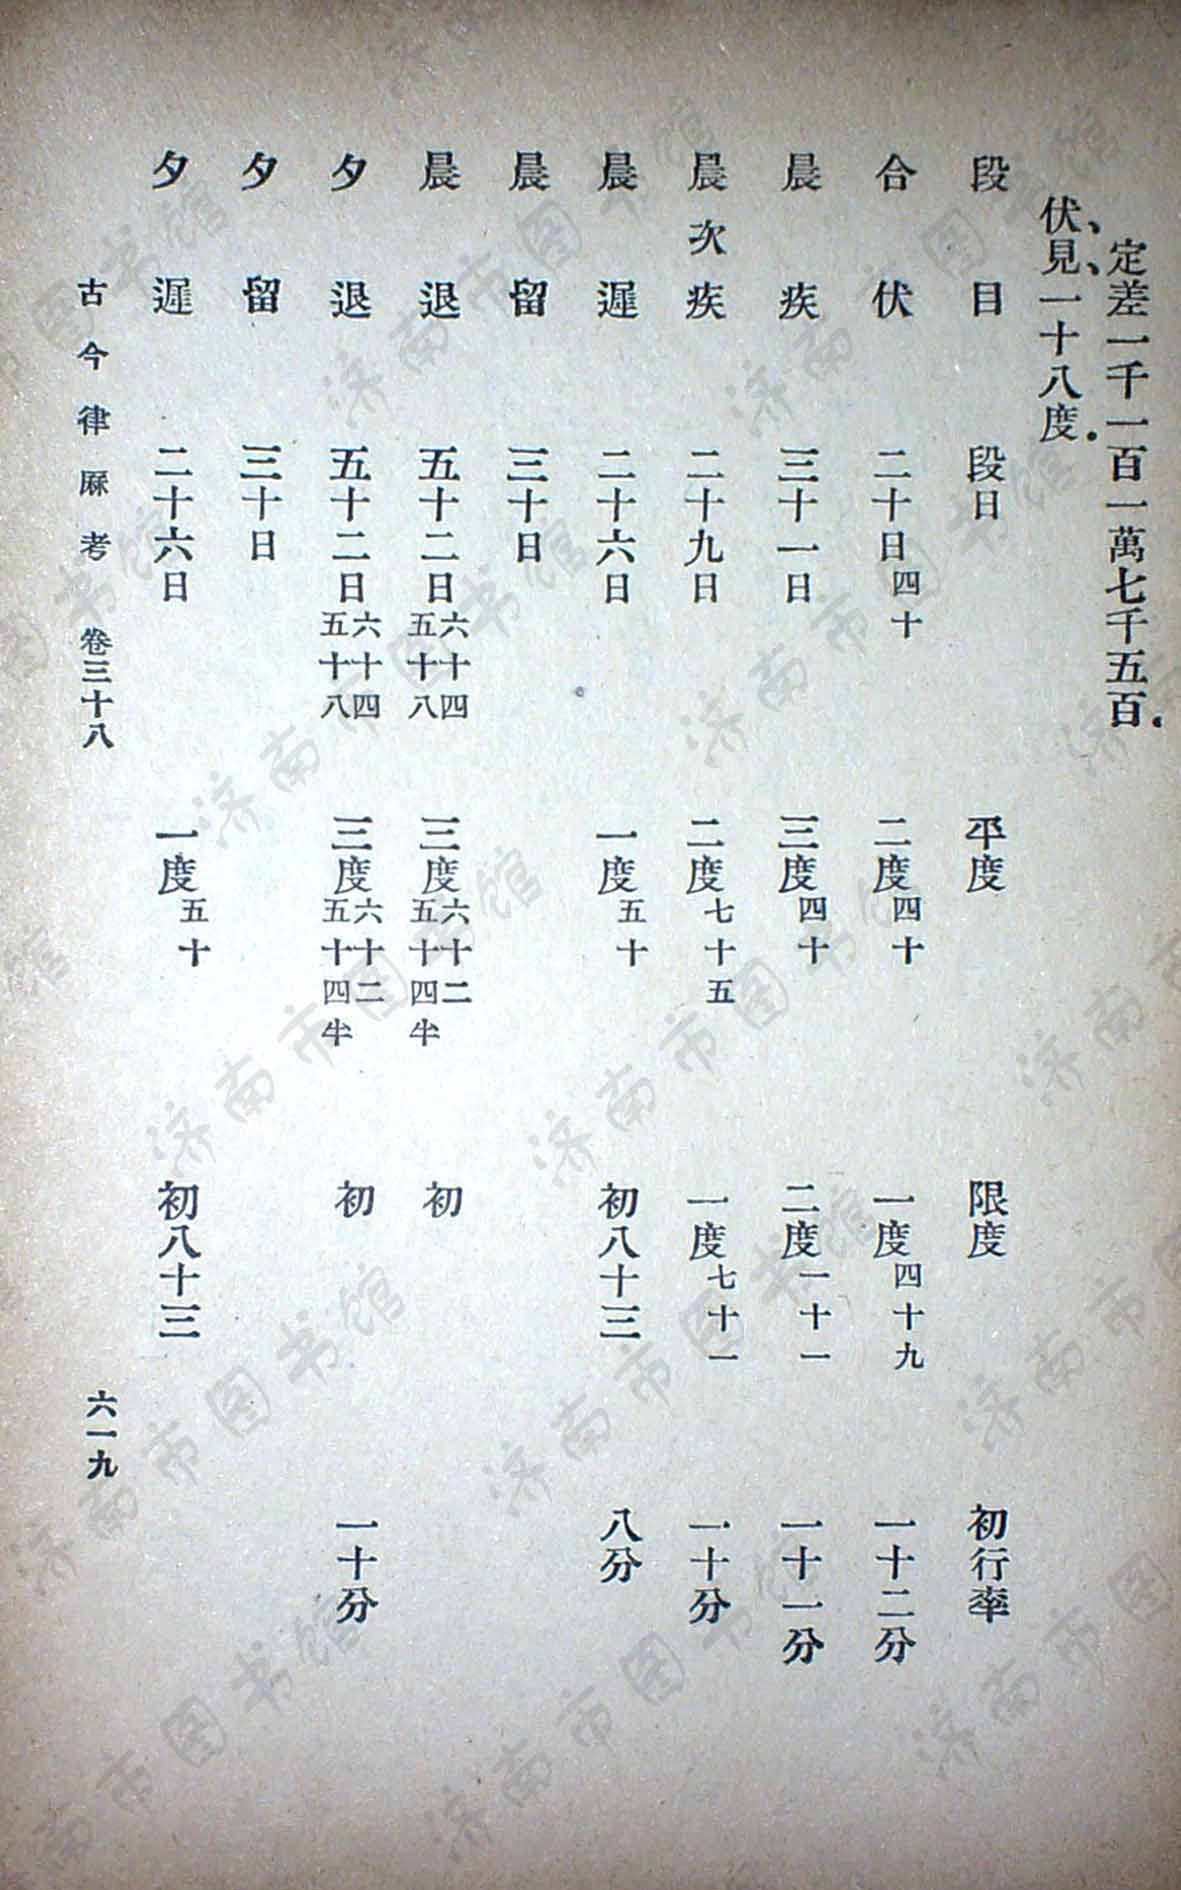 定差一千一百一萬七千五百.
伏、見、一十八度.
段日 段日 平度 限度 初行率
合伏 二十日四十 二度四十 一度四十九 一十二分
晨疾 三十一日 三度四十 二度一十一 一十一分
晨次疾 二十九日 二度七十五 一度七十一 一十分
晨遲 二十六日 一度五十 初八十三 八分
晨留 三十日
晨退 五十二日六十四五十八 三度六十二五十四半 初
夕退 五十二日六十四五十八 三度六十二五十四半 初 一十分
夕留 三十日
夕遲 二十六日 一度五十 初八十三
古今律厤考 卷三十八 六一九
济南市图书馆